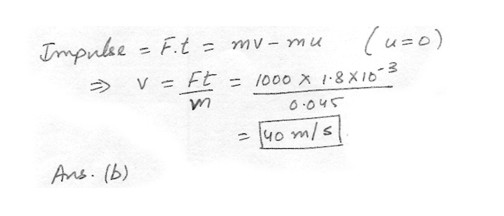 Impulse = F.t = mv - mu (u=0)
⇒ v = Ft/m = 1000 × 1.8×10⁻³ / 0.045
= 40 m/s
Ans. (b)